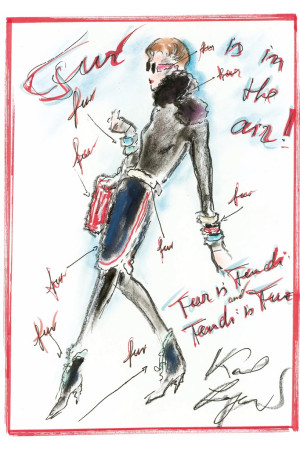 Fur
is in
the
air!
fur
fur
fur
fur
fur
fur
fur
fur
fur
Fur is Fendi
and
Fendi is Fur
Karl
Lagerfeld